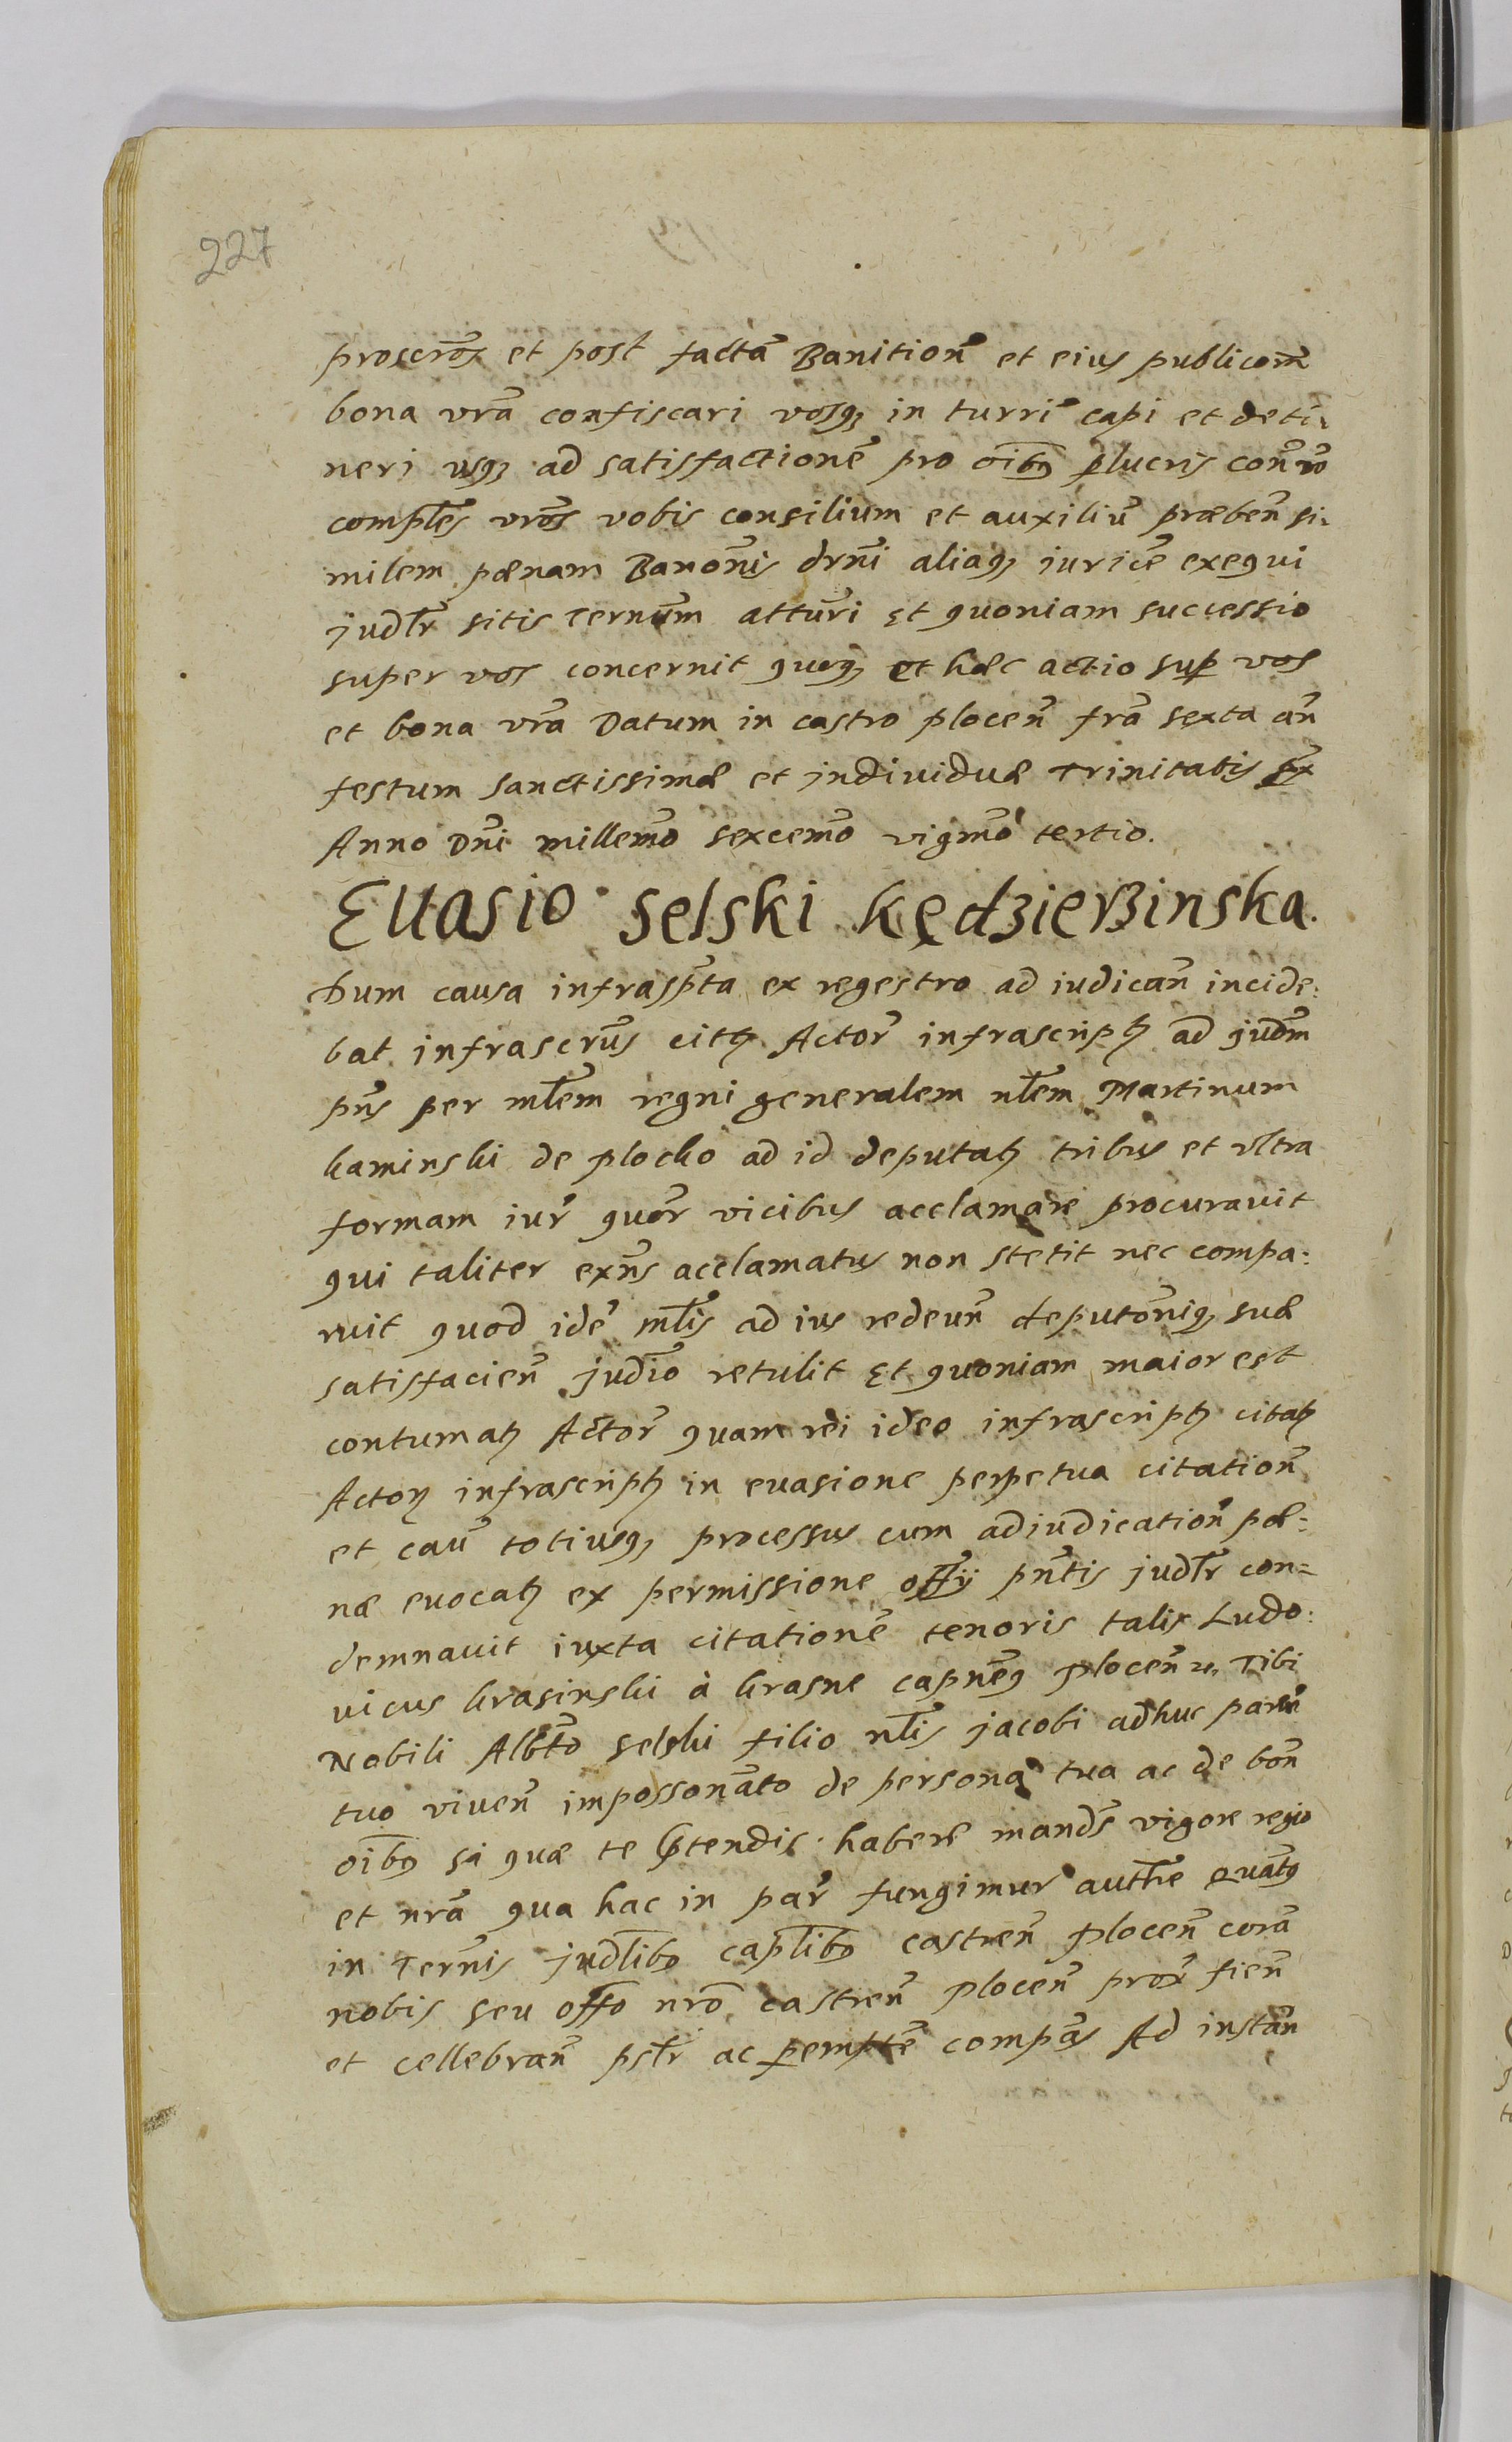 227
proscrōs et post factā Banitionē et eius publicoem̄
bona vrā confiscari vosq3 in turrī capi et deti-
neri usq3 ad satisfactionē pro oibꝰ p̄lucris con̄
complēs vrōs vobis consilium et auxiliū præben̄ si-
milem pœnam Banōnis drn̄i aliaq3 iuricē exequi
judlr̄ sitis Tern̄um atturī Et quoniam successio
super vos concernit quoq3 et hæc actio sup̄ vos
et bona vrā Datum in castro plocen̄ frā sexta an̄
festum sanctissimæ et individuæ Trinitatis
Anno Dn̄i millem̄o sexcem̄o vigm̄o tertio.
Evasio Selski Kędzierzinska.
Dum causa infrasp̄ta ex regestro ad iudican̄ incide:
bat infrascrūs citꝫ Actor̄ infrascriptꝫ ad jud̄m
pn̄s per ml̄em regni generalem nl̄em Martinum
kaminski de plocko ad id deputatꝫ tribus et vltra
formam iur̄ quōr vicibus acclamare procuravit
qui taliter exn̄s acclamatus non stetit nec compa:
ruit quod idē ml̄is ad ius redeun̄ deputōniq3 suæ
satisfacien̄ judīo retulit Et quoniam maior est
contumatꝫ Actor̄ quam rei ideo infrascriptꝫ citatꝫ
Actorꝫ infrascriptꝫ in evasione perpetua citation̄
et cau̅ totiusq3 processus cum adiudication̄ pœ:
næ evocatꝫ ex permissione offy pn̄tis judlr̄ con=
demnavit iuxta citationē tenoris talis Ludo:
vicus krasinski à krasne capnēq3 Plocen̄ Tibi
Nobili Albt̄o selski filio nl̄is jacobi adhuc paren̄
tuo viven̄ impossonāto de persona tua ac de bon̄
oibꝰ si quæ te p̄tendis haberē mandm̄s vigore regio
et nrā qua hac in par̄ fungimur autht̄e quātꝰ
in Tern̄is judl̄ibꝰ capl̄ibꝰ castren̄ Plocen̄ corā
nobis seu offo nrō castren̄ Plocen̄ prox̄ fien̄
et cellebran̄ pslr̄ ac p̄empt̄e compās Ad instan̄